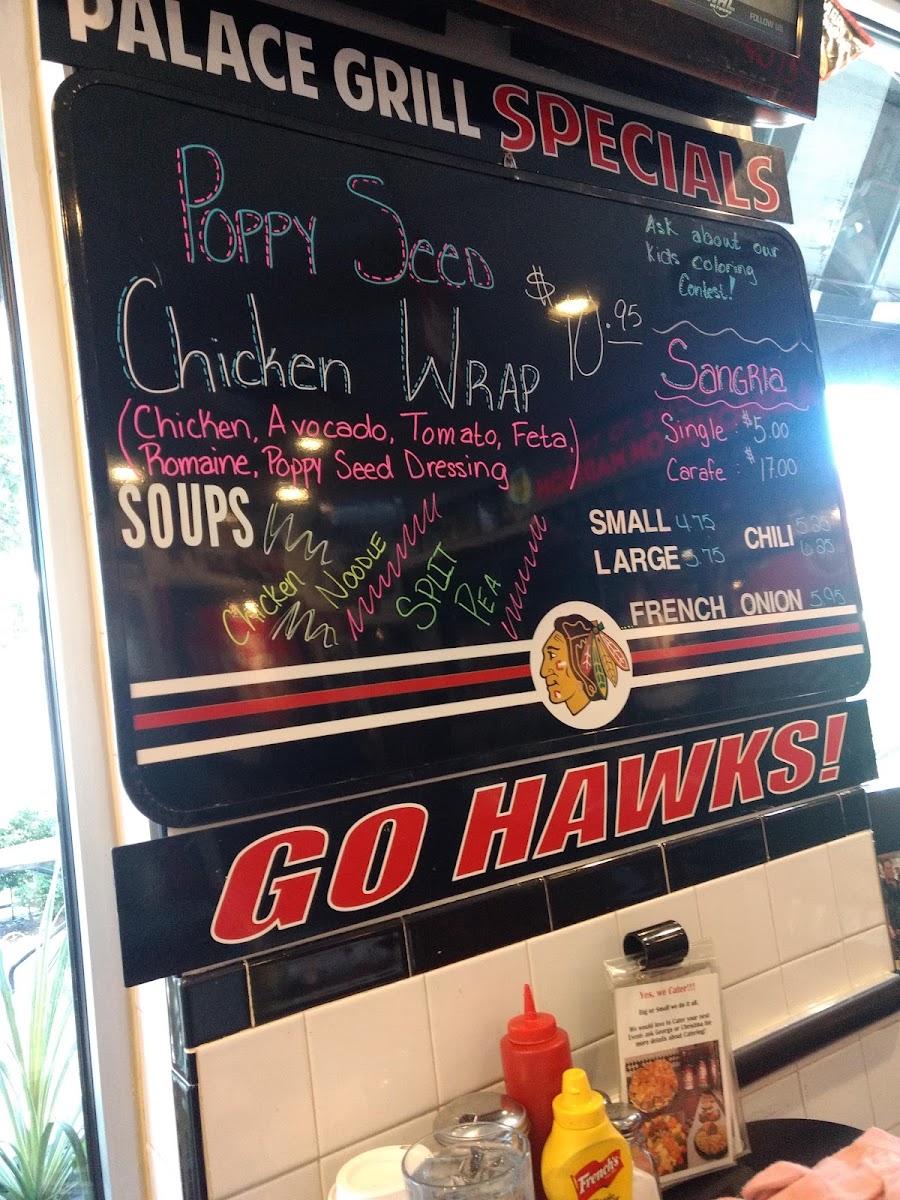 PALACE GRILL SPECIALS
FOLLOW US
Poppy Seed
Chicken Wrap
$10.95
(Chicken, Avocado, Tomato, Feta,
Romaine, Poppy Seed Dressing)
Ask about our
Kids coloring
Contest!
Sangria
Single : $5.00
Carafe : $17.00
SOUPS
Chicken Noodle
Split Pea
SMALL 4.75
LARGE 5.75
CHILI 5.25
6.25
FRENCH ONION 5.95
GO HAWKS!
Yes, we Cater!!!
Big or Small we do it all.
We would love to Cater your next
Event: ask George or Christina for
more details about Catering!
French's